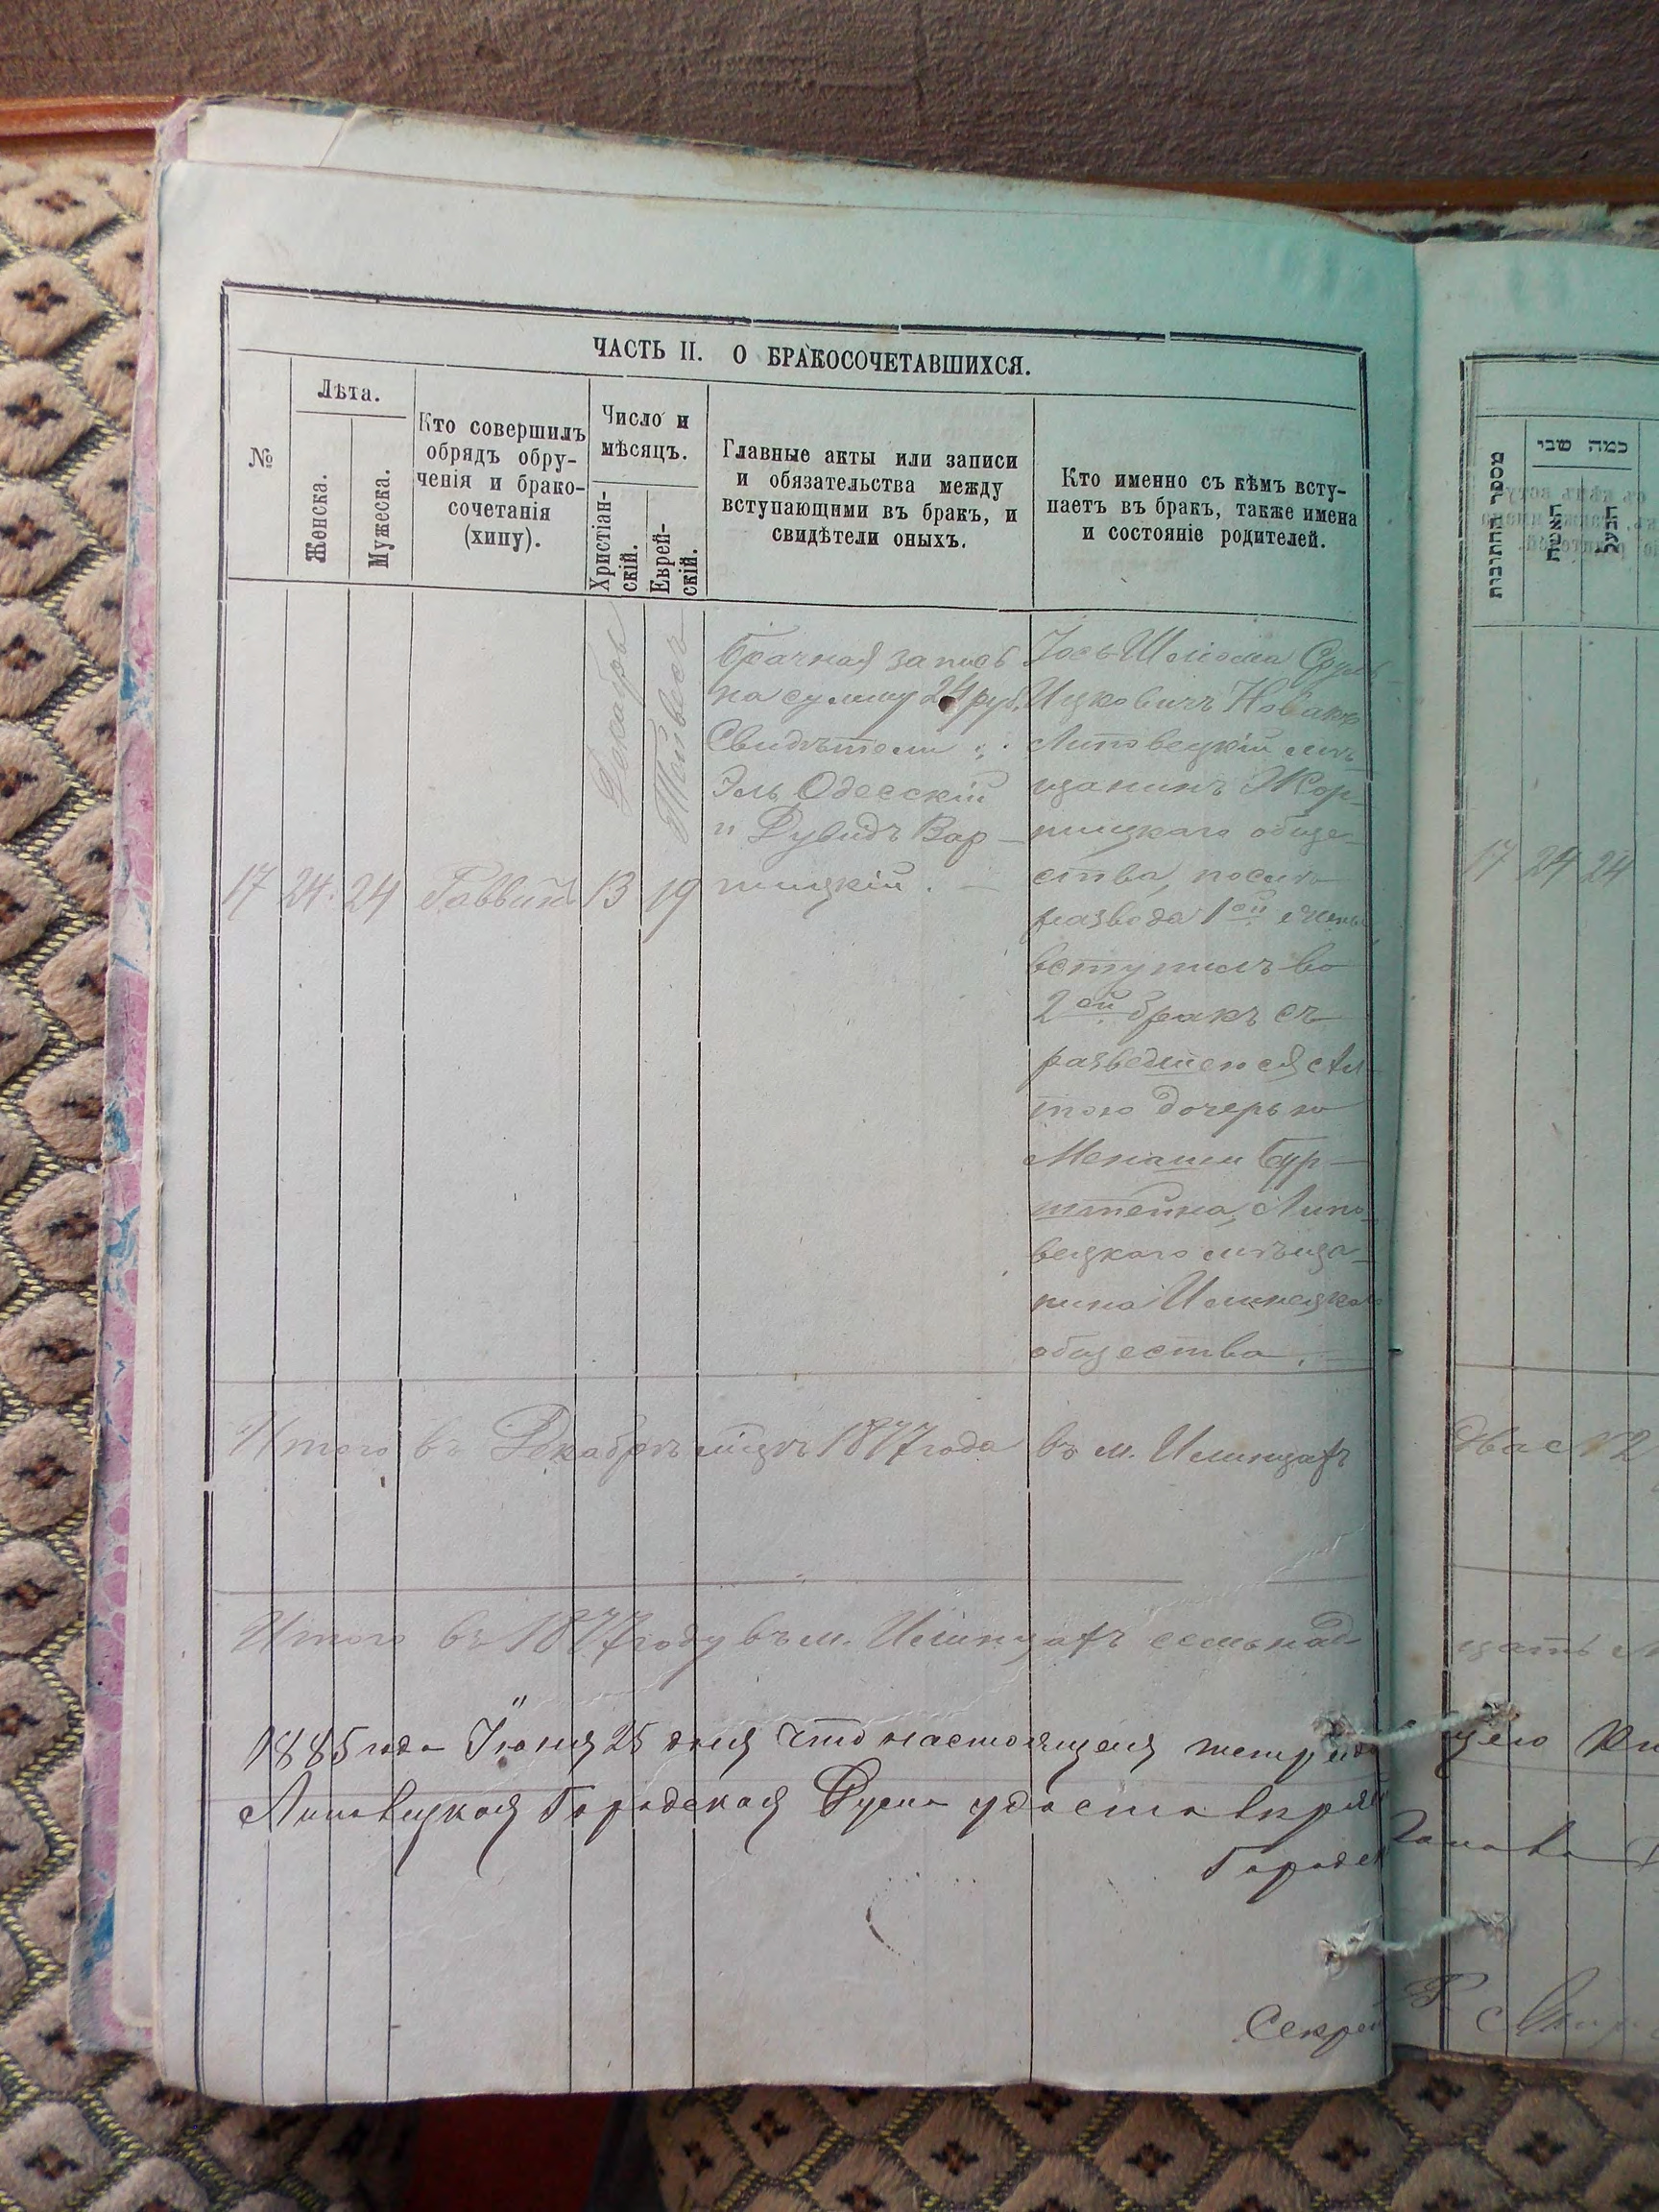 ЧАСТЬ II. О БРАКОСОЧЕТАВШИХСЯ.
№
Лѣта.
Женска.
Мужеска.
Кто совершилъ
обрядъ обру-
ченія и брако-
сочетанія
(хипу).
Число и
мѣсяцъ.
Христіан-
скій.
Еврей-
скій.
Главные акты или записи
и обязательства между
вступающими въ бракъ, и
свидѣтели оныхъ.
Кто именно съ кѣмъ всту-
паетъ въ бракъ, также имена
и состояніе родителей.
17
24
24
Раввинъ
Декабрь
13
Тейвесъ
19
Брачная запись
на сумму 24 руб.
Свидѣтели:
Эль Одесскій
и Дувидъ Вар-
шицкій.
Іось-Шлiома Сруль-
Ицковичъ Новакъ
Липовецкій мѣ-
щанинъ Жор-
нищкаго обще-
ства, послѣ
развода 1ой жены,
вступилъ во
2ой бракъ съ
разведшеюся Ал-
тою дочерью
Менаши Бур-
штейна, Липо-
вецкаго мѣща-
нина Илинецкаго
общества.
Итого въ Декабрѣ мцѣ 1877 года въ м. Илинцахъ
Итого въ 1877 году въ м. Илинцахъ семьнад-
1885 года Іюня 25 дня что настоящая тетрадь
Липовецкая Городская Дума удостовѣряе
Городск
Секрет
מספר החתונות
כמה שני
האשה
הבעל
17
24
24
два №2
цать
щею
Голова